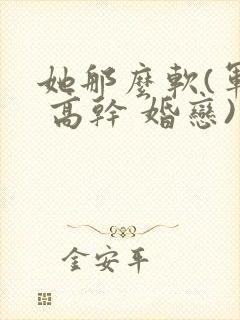 她那麼軟(軍
高幹 婚戀)
金安平